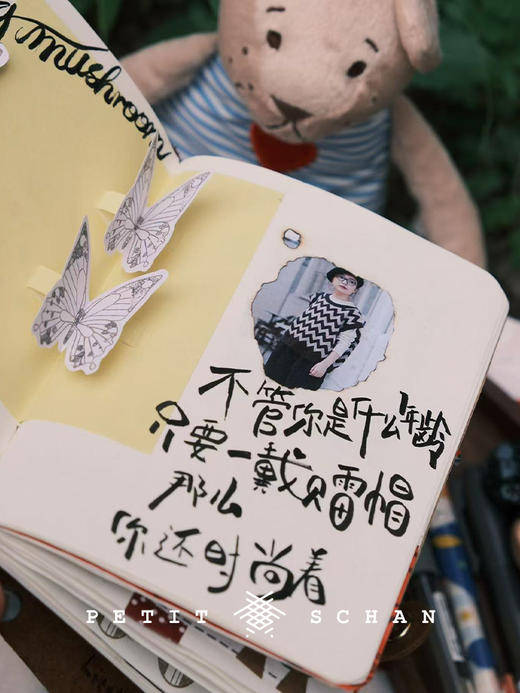 不管你是什么年龄
只要一戴贝雷帽
那么
你还时尚着
PETIT SCHAN